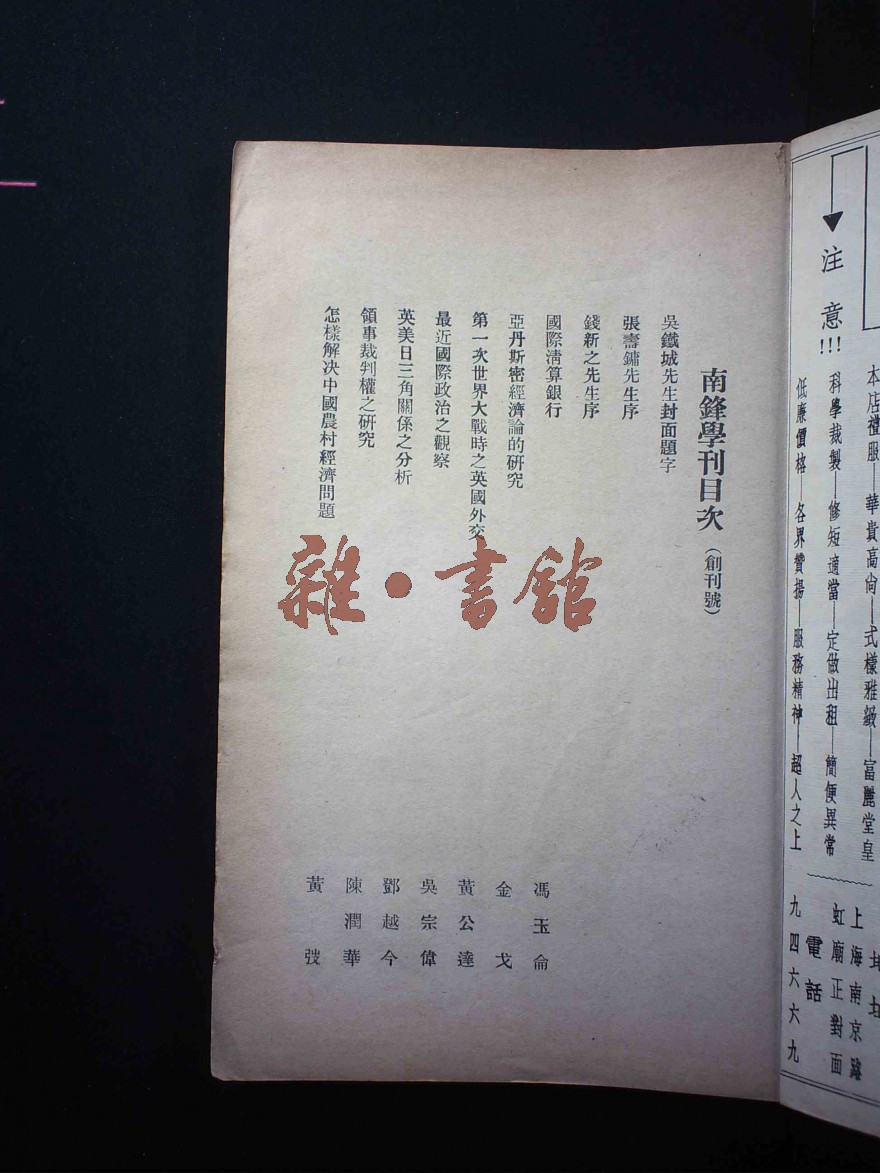 本店禮服——華貴高尙——式樣雅緻——富麗堂皇
注意!!!
科學裁製——修短適當——定做出租——簡便異常
低廉價格——各界贊揚——服務精神——超人之上
地址
上海南京路
虹廟正對面
電話
九四六六九
南鋒學刊目次（創刊號）
吳鐵城先生封面題字
張壽鏞先生序
錢新之先生序
國際淸算銀行 馮玉侖
亞丹斯密經濟論的硏究 金戈
第一次世界大戰時之英國外交 黃公達
最近國際政治之觀察 吳宗偉
英美日三角關係之分析 鄧越今
領事裁判權之硏究 陳潤華
怎樣解决中國農村經濟問題 黃弢
雜·書館